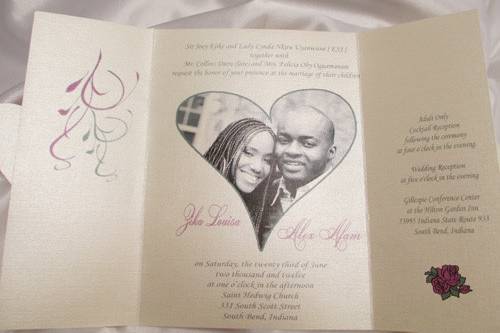 Sir Joey Ejike and Lady Lynda Nkiru Uzamwone [ KSJ ]
together with
Mr. Collins Davis Ilawi and Mrs. Felicia Oby Oguamanam
request the honor of your presence at the marriage of their children
Zeka Louisa
Alex Afam
on Saturday, the twenty third of June
two thousand and twelve
at one o'clock in the afternoon
Saint Hedwig Church
331 South Scott Street
South Bend, Indiana
Adult Only
Cocktail Reception
following the ceremony
at four o'clock in the evening
Wedding Reception
at five o'clock in the evening
Gillespie Conference Center
at the Hilton Garden Inn
53995 Indiana State Route 933
South Bend, Indiana